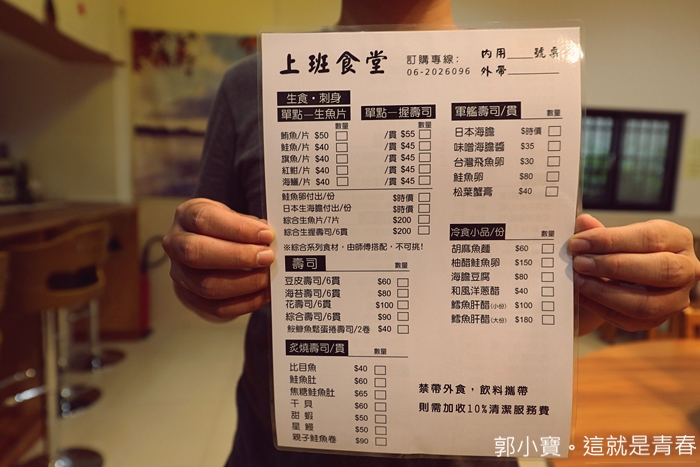 上班食堂
訂購專線:
06-2026096
內用____號桌
外帶
生食・刺身
單點—生魚片 數量
鮪魚/片 $50
鮭魚/片 $40
旗魚/片 $40
紅魽/片 $40
海鱺/片 $40
單點—握壽司 數量
/貫 $55
/貫 $45
/貫 $45
/貫 $45
/貫 $45
鮭魚卵付出/份 $時價
日本生海膽付出/份 $時價
綜合生魚片/7片 $200
綜合生握壽司/6貫 $200
※綜合系列食材,由師傅搭配,不可挑!
壽司 數量
豆皮壽司/6貫 $60
海苔壽司/6貫 $80
花壽司/6貫 $100
綜合壽司/6貫 $90
鮟鱇魚鬆蛋捲壽司/2卷 $40
炙燒壽司/貫 數量
比目魚 $40
鮭魚肚 $60
焦糖鮭魚肚 $65
干貝 $60
甜蝦 $50
星鰻 $50
親子鮭魚卷 $90
軍艦壽司/貫 數量
日本海膽 $時價
味噌海膽醬 $35
台灣飛魚卵 $30
鮭魚卵 $80
松葉蟹膏 $40
冷食小品/份 數量
胡麻魚麵 $60
柚醋鮭魚卵 $150
海膽豆腐 $80
和風洋蔥醋 $40
鱈魚肝醋(小份) $100
鱈魚肝醋(大份) $180
禁帶外食,飲料攜帶
則需加收10%清潔服務費
郭小寶。這就是青春